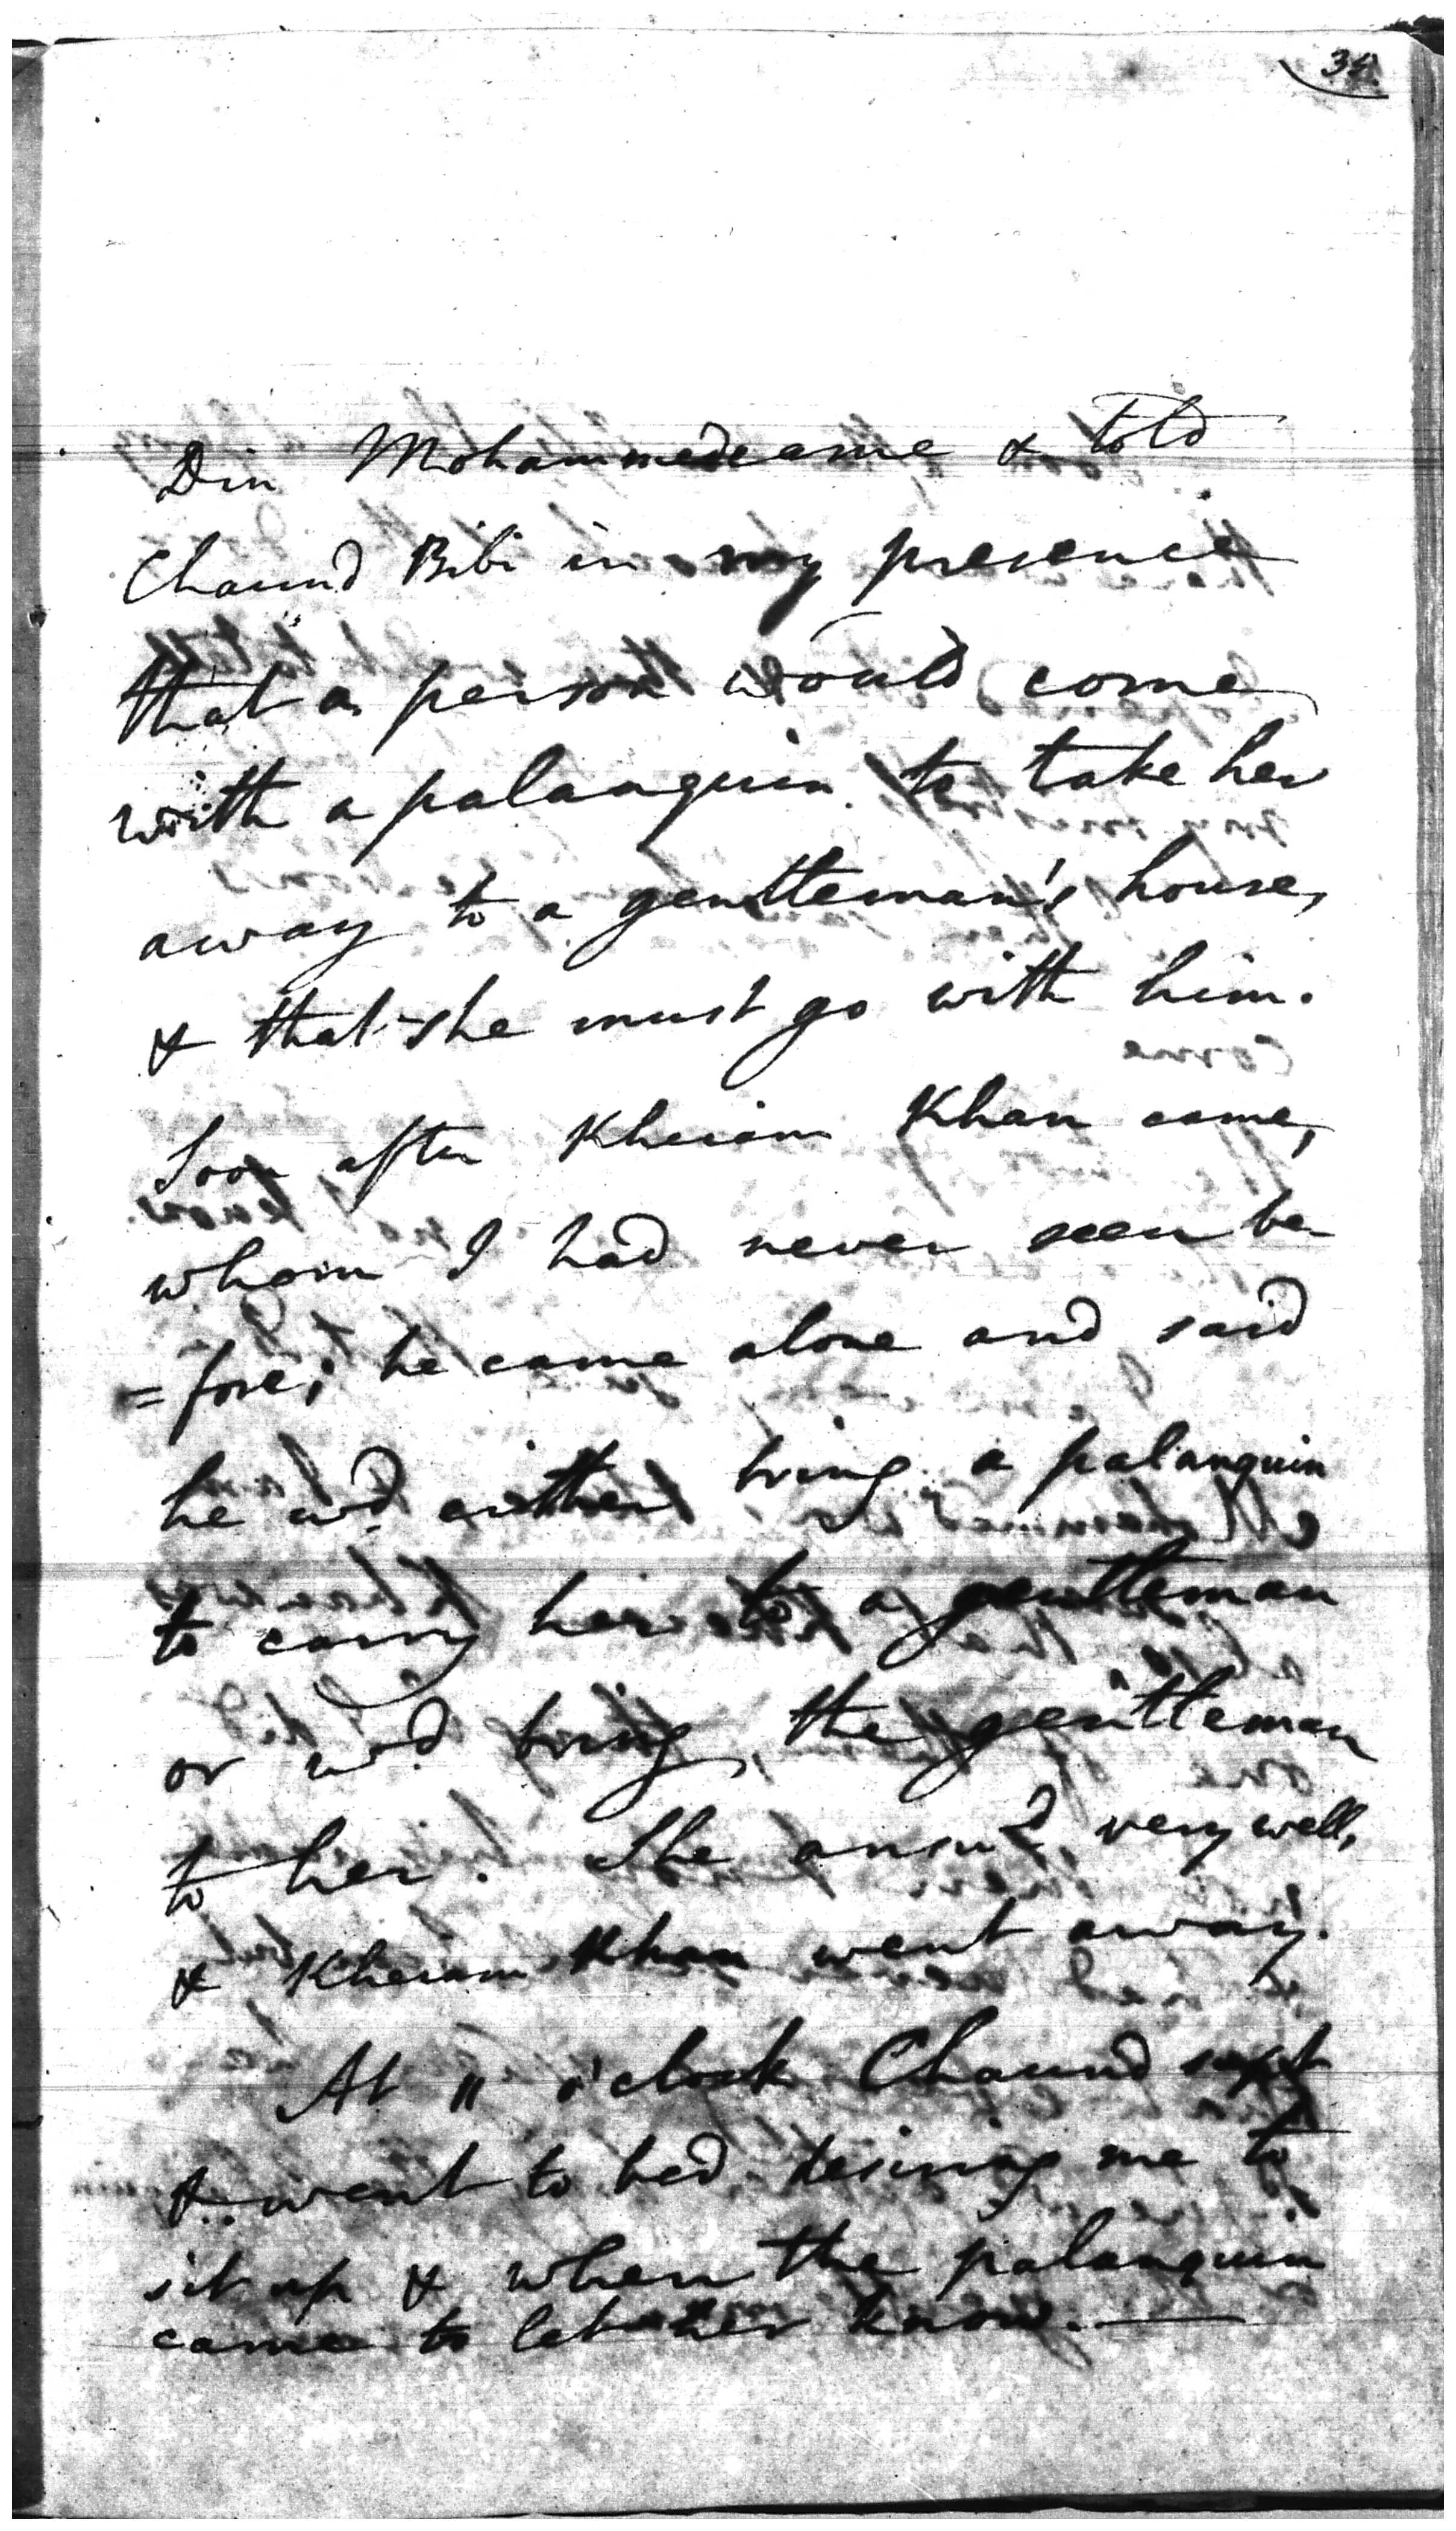 Din Mohammed came & told
Chaund Bibi in my presence
that a person would come
with a palanquin to take her
away to a gentleman's house,
& that she must go with him.
Soon after Kheiam Khan came,
whom I had never seen be
=fore; he came alone and said
he wd. either bring a palanquin
to carry her to a gentleman
or wd. bring the gentleman
to her. She answd. very well,
& Kheiam Khan went away.
At 11 o'clock Chaund
& went to bed desiring me to
sit up & when the palanquin
came to let her know.